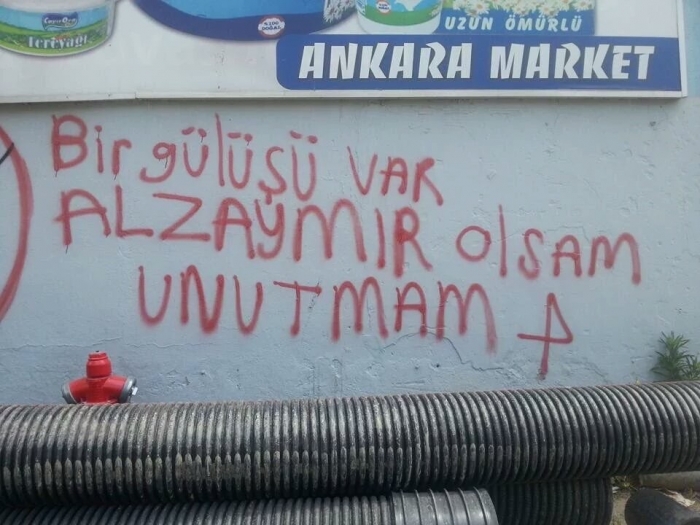 Tereyağı
%100
DOĞAL
UZUN ÖMÜRLÜ
ANKARA MARKET
Bir gülüşü VAR
ALZAYMIR olSAM
UNUTMAM